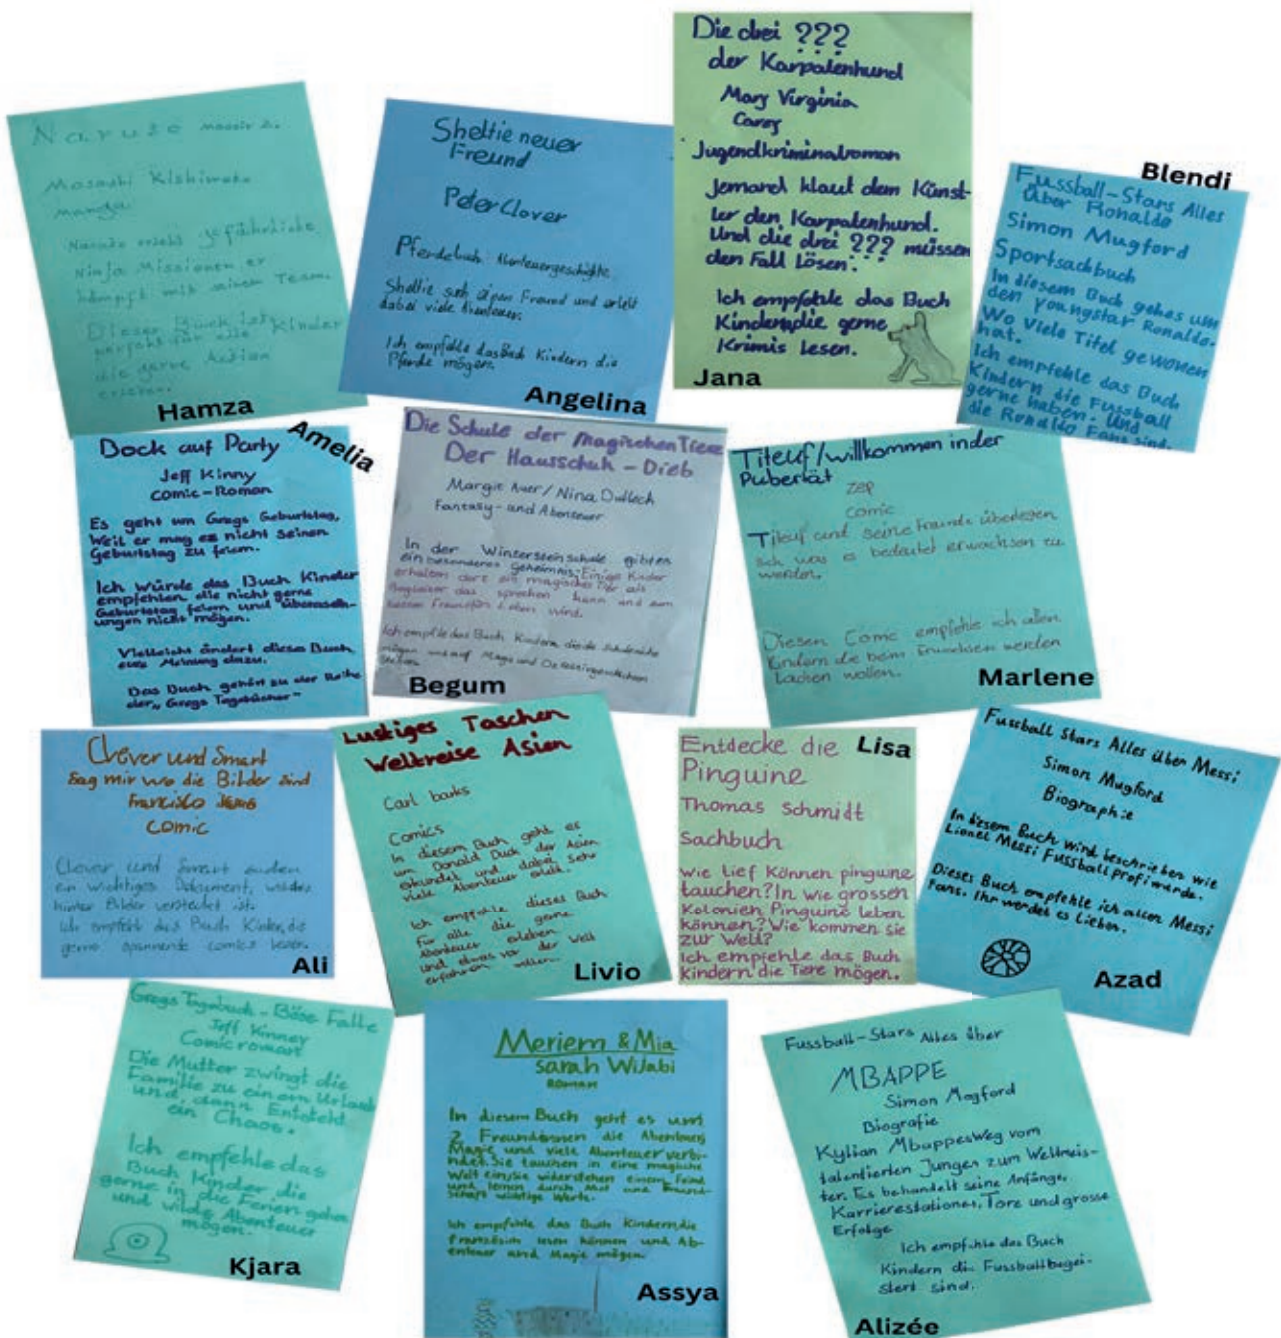 Naruto massiv 2.
Masashi Kishimoto
manga
Naruto erlebt gefährliche
Ninja Missionen er
kämpft mit seinem Team.
Dieses Buch ist
perfekt für alle Kinder
die gerne Action
erleben.
Hamza
Sheltie neuer
Freund
Peter Clover
Pferdebuch Abenteuergeschichte
Sheltie such einen Freund und erlebt
dabei viele Abenteuer.
Ich empfehle das Buch Kindern die
Pferde mögen.
Angelina
Die drei ???
der Karpatenhund
Mary Virginia
Carey
Jugendkriminalroman
Jemand klaut dem Künst-
ler den Karpatenhund.
Und die drei ??? müssen
den Fall Lösen.
Ich empfehle das Buch
Kindern, die gerne
Krimis Lesen.
Jana
Blendi
Fussball-Stars Alles
Über Ronaldo
Simon Mugford
Sportsachbuch
In diesem Buch gehes um
den youngstar Ronaldo.
Wo Viele Titel gewonen
hat.
Ich empfehle das Buch
Kindern die Fussball
gerne haben. Und
die Ronaldo Fans sind.
Amelia
Bock auf Party
Jeff Kinny
Comic-Roman
Es geht um Gregs Geburtstag,
Weil er mag es nicht seinen
Geburtstag zu feiern.
Ich würde das Buch Kinder
empfehlen die nicht gerne
Geburtstag feiern und überrasch-
ungen nicht mögen.
Vielleicht ändert dieses Buch
eure Meinung dazu.
Das Buch gehört zu der Reihe
der „Gregs Tagebücher"
Die Schule der magischen Tiere
Der Hausschuh-Dieb
Margit Auer / Nina Dulleck
Fantasy- und Abenteuer
In der Wintersteinschule gibt es
ein besonderes Geheimnis: Einige Kinder
erhalten dort ein magisches Tier als
Begleiter das sprechen kann und zum
besten Freund fürs Leben wird.
Ich empfehle das Buch Kindern die die Schulreihe
mögen und auf Magie und
stehen.
Begum
Titeuf/willkommen in der
Pubertät
Zep
Comic
Titeuf und seine Freunde überlegen
sich was es bedeutet erwachsen zu
werden.
Diesen Comic empfehle ich allen
Kindern die beim Erwachsen werden
lachen wollen.
Marlene
Clever und Smart
Sag mir wo die Bilder sind
Francisco
Comic
Clever und Smart suchen
ein wichtiges Dokument, welches
hinter Bilder versteckt ist.
Ich empfehle das Buch Kinder, die
gerne spannende comics lesen.
Ali
Lustiges Taschen
Weltreise Asien
Carl barks
Comics
In diesem Buch geht es
um Donald Duck der Asien
erkundet und dabei sehr
viele Abenteuer erlebt.
Ich empfehle dieses Buch
für alle die gerne
Abenteuer erleben
und etwas von der Welt
erfahren wollen.
Livio
Lisa
Entdecke die
Pinguine
Thomas Schmidt
Sachbuch
Wie tief Können pinguine
tauchen? In wie grossen
Kolonien Pinguine leben
können? Wie kommen sie
zur Welt?
Ich empfehle das Buch
kindern die Tiere mögen.
Fussball Stars Alles über Messi
Simon Mugford
Biographie
In diesem Buch wird beschrieben wie
Lionel Messi Fussballprofi wurde.
Dieses Buch empfehle ich allen Messi
Fans. Ihr werdet es Lieben.
Azad
Gregs Tagebuch - Böse Falle
Jeff Kinney
Comicroman
Die Mutter zwingt die
Familie zu einem Urlaub
und, dann Entsteht
ein Chaos.
Ich empfehle das
Buch Kinder, die
gerne in die Ferien gehen
und wilde Abenteuer
mögen.
Kjara
Meriem & Mia
sarah Wilabi
Roman
In diesem Buch geht es um
2 Freundinnen die Abenteuer,
Magie und viele Abenteuer verbi-
ndet. Sie tauchen in eine magische
Welt ein, sie widerstehen einem Feind
und lernen durch Mut und Freund-
schaft wichtige Werte.
Ich empfehle das Buch Kindern, die
Französich lesen können und Ab-
enteuer und Magie mögen.
Assya
Fussball-Stars Alles über
MBAPPE
Simon Mogford
Biografie
Kylian Mbappes Weg vom
talentierten Jungen zum Weltmeis-
ter. Es behandelt seine Anfänge,
Karrierestationen, Tore und grosse
Erfolge
Ich empfehle das Buch
Kindern die Fussballbegei-
stert sind.
Alizée